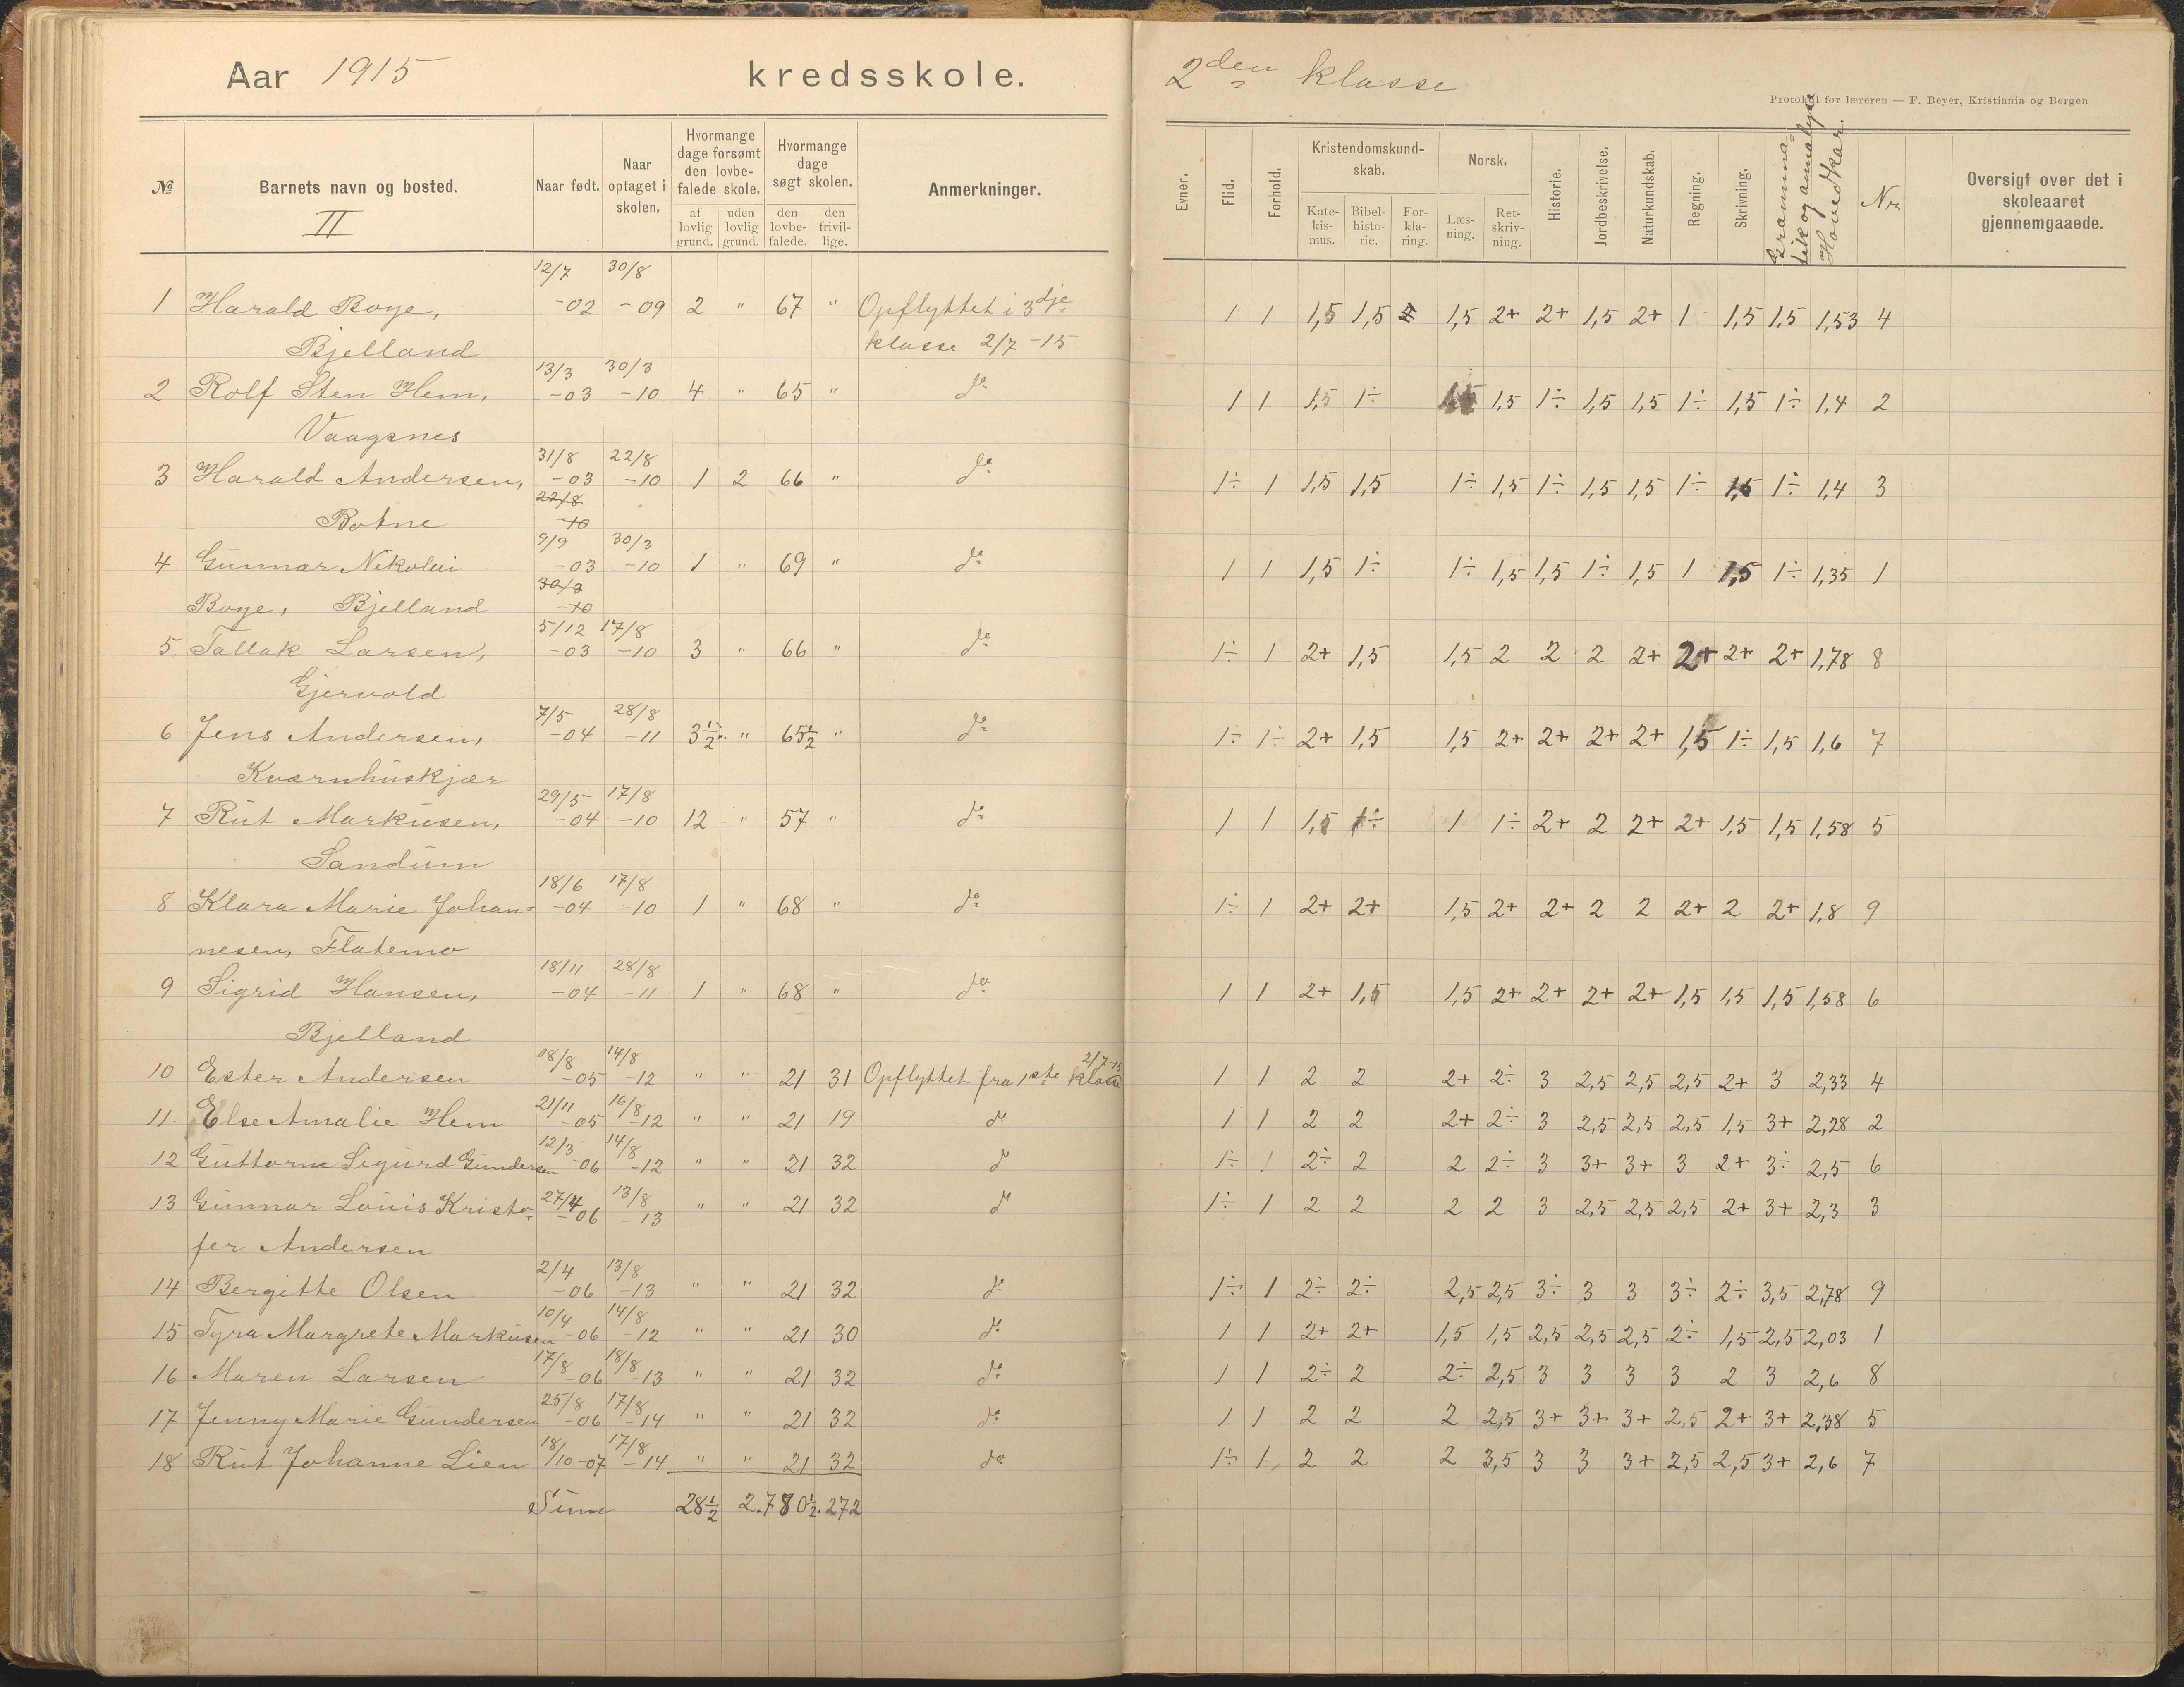 Aar 1915 kredsskole.
№ Barnets navn og bosted. Naar født. Naar optaget i skolen. Hvormange dage forsømt den lovbefalede skole. af lovlig grund. uden lovlig grund. Hvormange dage søgt skolen. den lovbefalede. den frivillige. Anmerkninger.
II
12/7 30/8
1 Harald Boye, -02 -09 2 " 67 " Opflyttet i 3dje
Bjelland klasse 2/7 -15
13/3 30/3
2 Rolf Sten Hem, -03 -10 4 " 65 " do
Vaagsnes
31/8 22/8
3 Harald Andersen, -03 -10 1 2 66 " do
22/8
Botne -10
9/9 30/3
4 Gunnar Nikolai -03 -10 1 " 69 " do
30/3
Boye, Bjelland -10
5/12 17/8
5 Tallak Larsen, -03 -10 3 " 66 " do
Gjervold
7/5 28/8
6 Jens Andersen, -04 -11 3½ " 65½ " do
Kværnhuskjær
29/5 17/8
7 Rut Markusen, -04 -10 12 " 57 " do
Sandum
18/6 17/8
8 Klara Marie Johan= -04 -10 1 " 68 " do
nesen, Flatemo
18/11 28/8
9 Sigrid Hansen, -04 -11 1 " 68 " do
Bjelland
18/8 14/8 2/7-15
10 Ester Andersen -05 -12 " " 21 31 Opflyttet fra 1ste klasse
21/11 16/8
11. Else Amalie Hem -05 -12 " " 21 19 do
12/3 14/8
12 Guttorm Sigurd Gundersen -06 -12 " " 21 32 do
27/4 13/8
13 Gunnar Louis Kristo= -06 -13 " " 21 32 do
fer Andersen
2/4 13/8
14 Bergitte Olsen -06 -13 " " 21 32 do
10/4 14/8
15 Tyra Margrete Markusen -06 -12 " " 21 30 do
17/8 18/8
16 Maren Larsen -06 -13 " " 21 32 do
25/8 17/8
17 Jenny Marie Gundersen -06 -14 " " 21 32 do
18/10 17/8
18 Rut Johanne Lien -07 -14 " " 21 32 do
Sum 28½ 2. 780½. 272
2den klasse
Protokol for læreren — F. Beyer, Kristiania og Bergen
Evner. Flid. Forhold. Kristendomskundskab. Katekismus. Bibelhistorie. Forklaring. Norsk. Læsning. Retskrivning. Historie. Jordbeskrivelse. Naturkundskab. Regning. Skrivning. Gramma=tik og analyse Hovedkar. Nr. Oversigt over det i skoleaaret gjennemgaaede.
1 1 1,5 1,5 1,5 2+ 2+ 1,5 2+ 1 1,5 1,5 1,53 4
1 1 1,5 1÷ 1,5 1,5 1÷ 1,5 1,5 1÷ 1,5 1÷ 1,4 2
1÷ 1 1,5 1,5 1÷ 1,5 1÷ 1,5 1,5 1÷ 1,5 1÷ 1,4 3
1 1 1,5 1÷ 1÷ 1,5 1,5 1÷ 1,5 1 1,5 1÷ 1,35 1
1÷ 1 2+ 1,5 1,5 2 2 2 2+ 2+ 2+ 2+ 1,78 8
1÷ 1÷ 2+ 1,5 1,5 2+ 2+ 2+ 2+ 1,5 1÷ 1,5 1,6 7
1 1 1,5 1÷ 1 1÷ 2+ 2 2+ 2+ 1,5 1,5 1,58 5
1÷ 1 2+ 2+ 1,5 2+ 2+ 2 2 2+ 2 2+ 1,8 9
1 1 2+ 1,5 1,5 2+ 2+ 2+ 2+ 1,5 1,5 1,5 1,58 6
1 1 2 2 2+ 2÷ 3 2,5 2,5 2,5 2+ 3 2,33 4
1 1 2 2 2+ 2÷ 3 2,5 2,5 2,5 1,5 3+ 2,28 2
1÷ 1 2÷ 2 2 2÷ 3 3+ 3+ 3 2+ 3÷ 2,5 6
1÷ 1 2 2 2 2 3 2,5 2,5 2,5 2+ 3+ 2,3 3
1÷ 1 2÷ 2÷ 2,5 2,5 3÷ 3 3 3÷ 2÷ 3,5 2,78 9
1 1 2+ 2+ 1,5 1,5 2,5 2,5 2,5 2÷ 1,5 2,5 2,03 1
1 1 2÷ 2 2÷ 2,5 3 3 3 3 2 3 2,6 8
1 1 2 2 2 2,5 3+ 3+ 3+ 2,5 2+ 3+ 2,38 5
1÷ 1 2 2 2 3,5 3 3 3+ 2,5 2,5 3+ 2,6 7